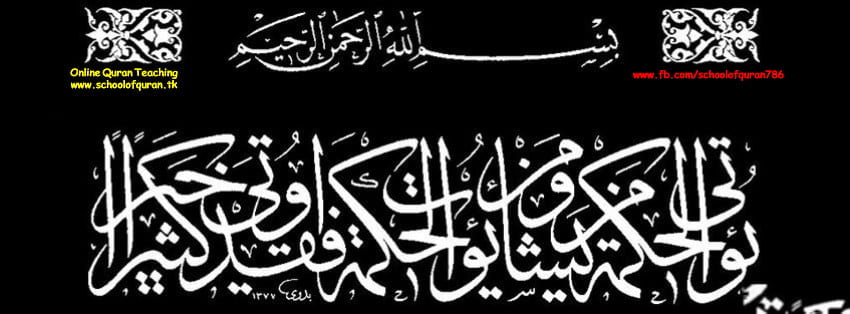 بِسْمِ اللهِ الرَّحْمٰنِ الرَّحِيْمِ
Online Quran Teaching
www.schoolofquran.tk
www.fb.com/schoolofquran786
يؤتي الحكمة من يشاء ومن يؤت الحكمة فقد اوتي خيرًا كثيرًا
بدوي ١٣٧٧